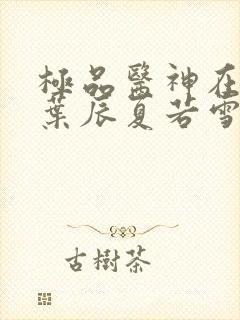 極品醫神在
葉辰夏若雪
古樹茶